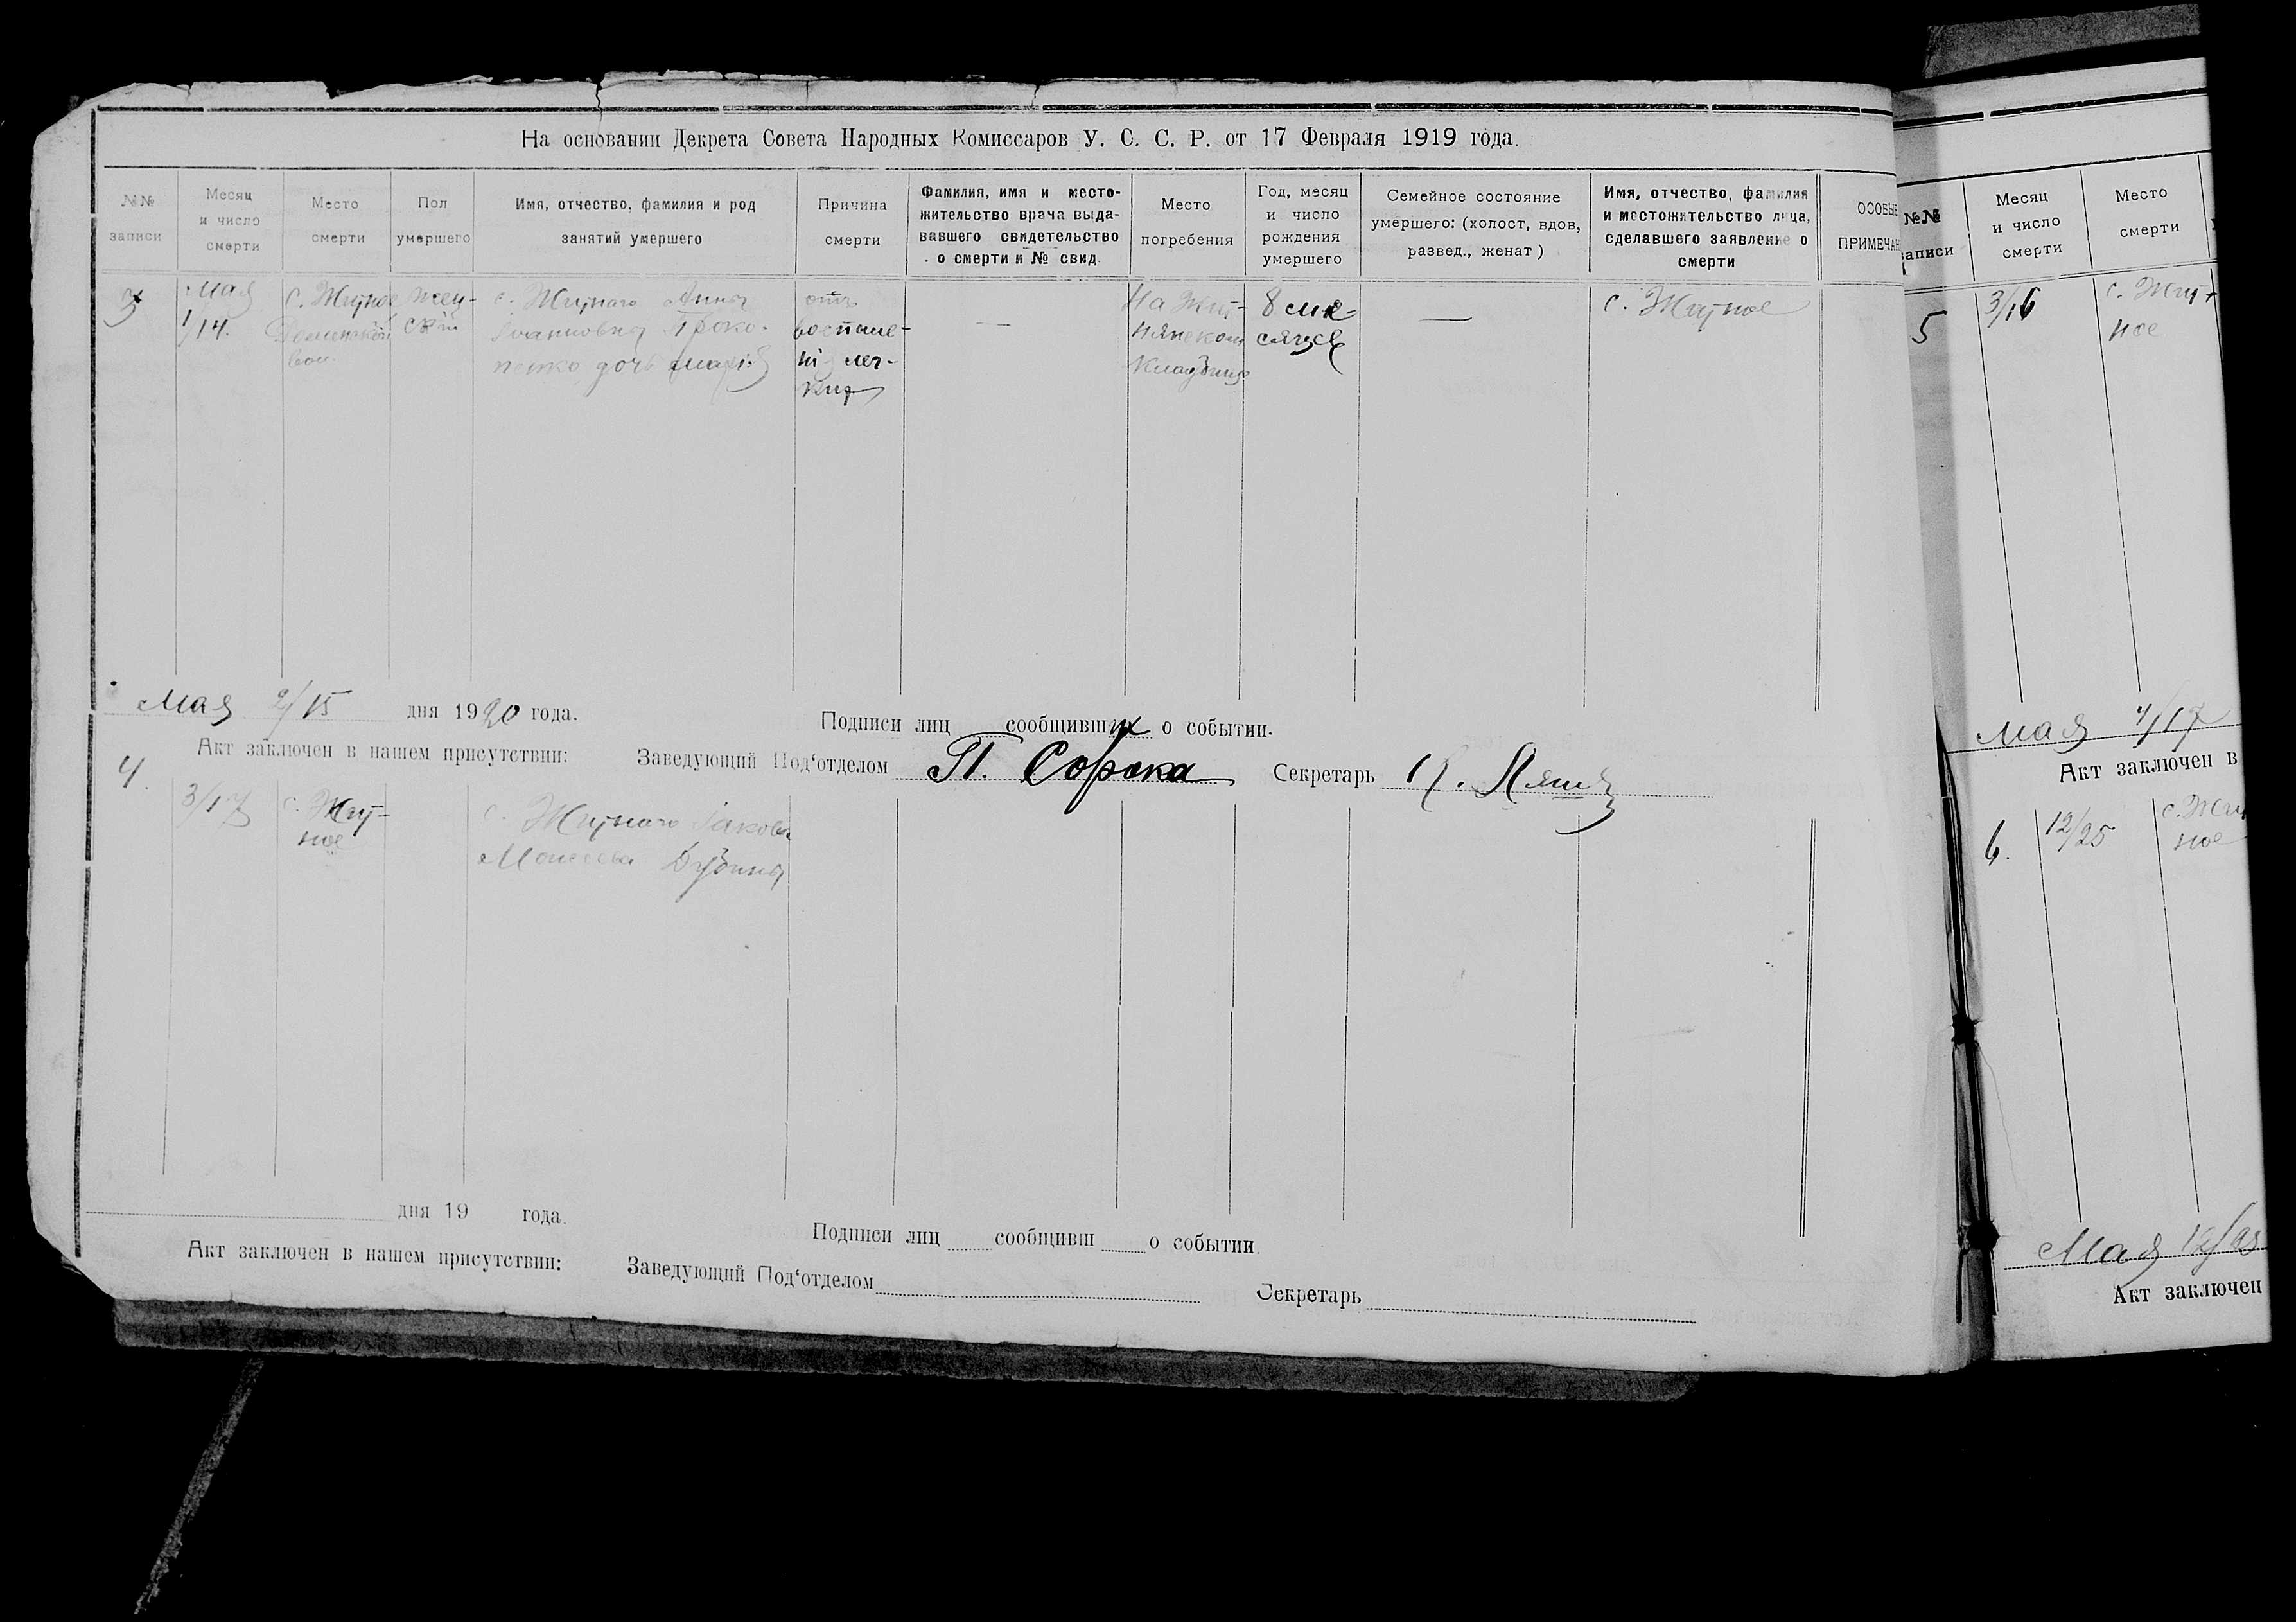 На основании Декрета Совета Народных Комиссаров У. С. С. Р. от 17 Февраля 1919 года.
№№
записи
Месяц
и число
смерти
Место
смерти
Пол
умершего
Имя, отчество, фамилия и род
занятий умершего
Причина
смерти
Фамилия, имя и место-
жительство врача выда-
вавшего свидетельство
о смерти и № свид.
Место
погребения
Год, месяц
и число
рождения
умершего
Семейное состояние
умершего: (холост, вдов,
развед., женат)
Имя, отчество, фамилия
и местожительство лица,
сделавшего заявление о
смерти
ОСОБЫЕ
ПРИМЕЧАН
3
Мая
1/14.
с. Жутное
вол.
жен-
скій
с. Жутнаго Анна
Іоанновна Проко-
пенко дочь
отъ
воспале-
нія лег-
кихъ
—
На Жут-
нянском
кладбище
8 мѣ-
сяцев
—
с. Жутное
Мая 2/15 дня 1920 года.
Подписи лиц сообщивших о событии.
Акт заключен в нашем присутствии: Заведующий Под‘отделом П. Сорока Секретарь
4.
3/17
с. Жут-
ное
с. Жутнаго Іакова
Моисеева
дня 19 года.
Подписи лиц сообщивш о событии.
Акт заключен в нашем присутствии: Заведующий Под‘отделом Секретарь
№№
записи
Месяц
и число
смерти
Место
смерти
5
3/16
с. Жут-
ное
Мая 4/17
Акт заключен в
6.
12/25
с. Жут
ное
Мая
Акт заключен